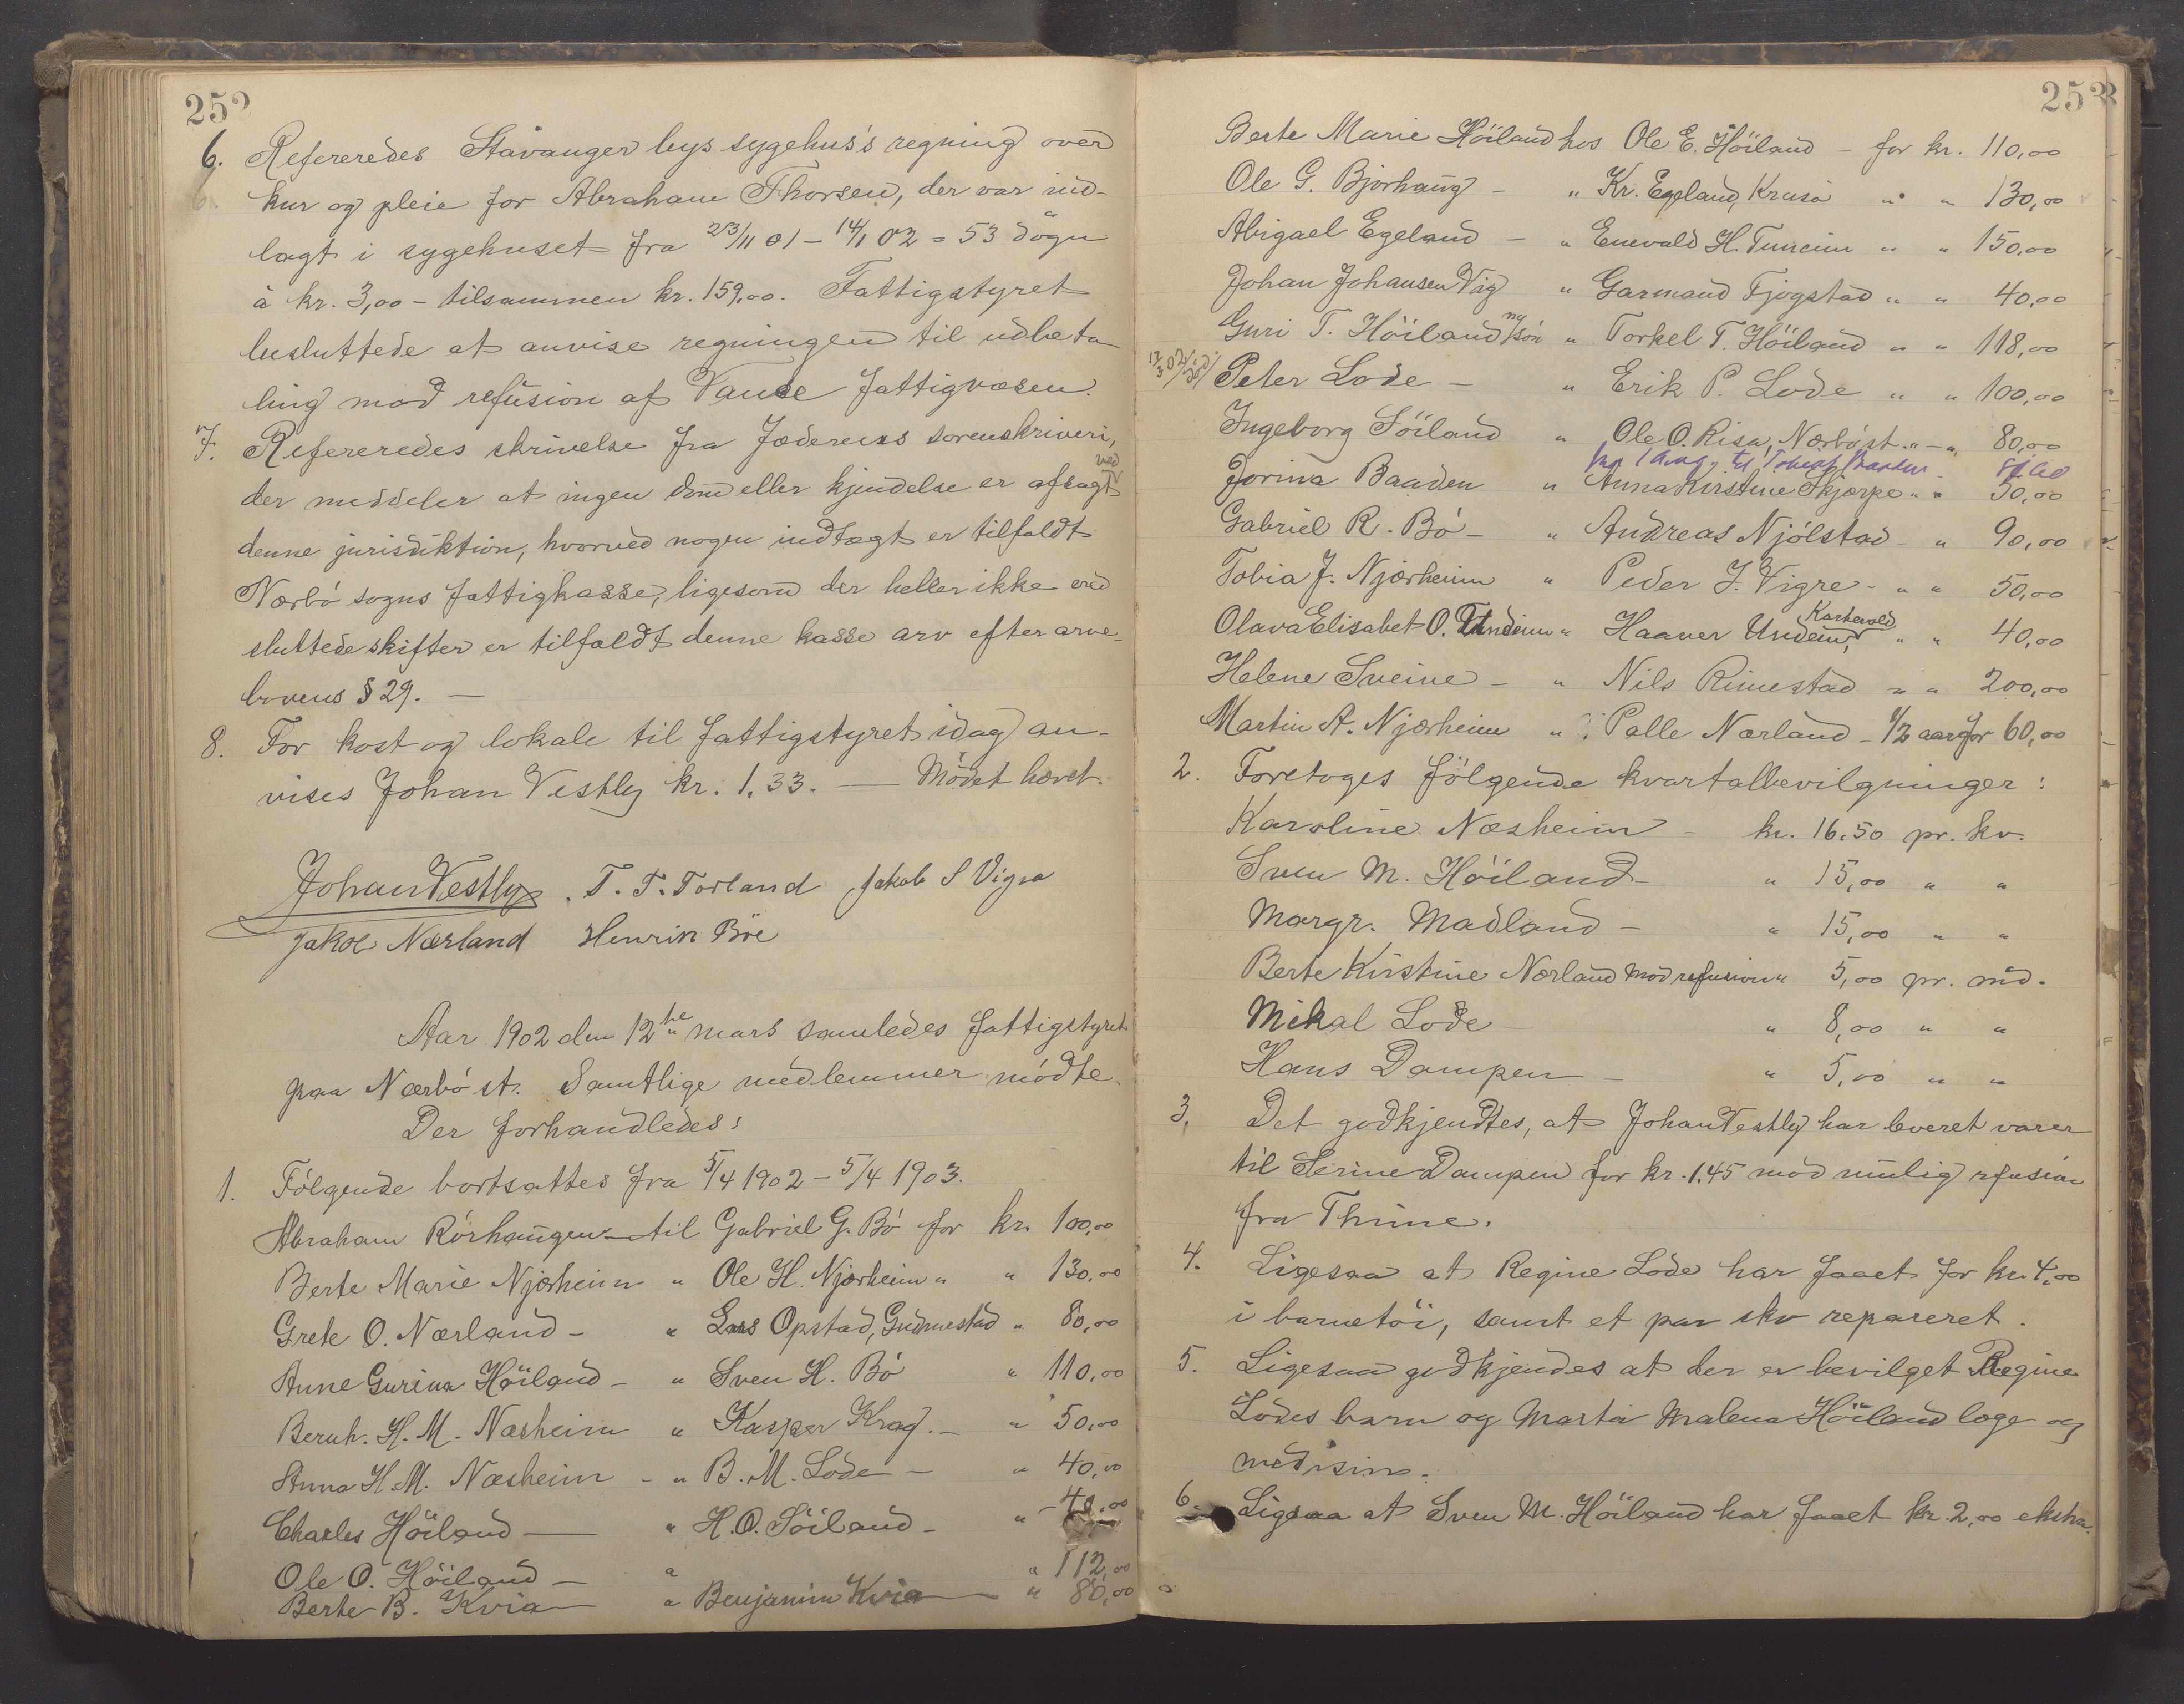 252
6. Refereredes Stavanger bys sygehus's regning over
kur og pleie for Abraham Thorsen, der var ind-
lagt i sygehuset fra 23/11 01 – 14/1 02 = 53 døgn
à kr. 3,00 – tilsammen kr. 159,00. Fattigstyret
besluttede at anvise regningen til udbeta-
ling mod refusion af Vanse fattigvæsen.
7. Refereredes skrivelse fra Jæderens sorenskriveri,
der meddeler at ingen dom eller kjendelse er afsagt ved
denne jurisdiktion, hvorved nogen indtægt er tilfaldt
Nærbö sogns fattigkasse, ligesom der heller ikke ved
sluttede skifter er tilfaldt denne kasse arv efter arve-
lovens § 29. —
8. For kost og lokale til fattigstyret idag an-
vises Johan Vestly kr. 1,33. — Mödet hævet.
Johan Vestly. T. T. Torland Jakob S Vigra
Jakob Nærland Henrik Böe
Aar 1902 den 12te mars samledes fattigstyret
paa Nærbö st. Samtlige medlemmer mödte.
Der forhandledes:
1. Fölgende bortsattes fra 5/4 1902 – 5/4 1903.
Abraham Rörhaugen – til Gabriel G. Bö for kr. 100,00
Berte Marie Njærheim " Ole H. Njærheim " " 130,00
Grete O. Nærland – " Lars Opstad, Gudmestad " 80,00
Anne Gurina Höiland – " Sven H. Bö " 110,00
Bernh. H. M. Næsheim " Kasper Krag. – " 50,00
Anna H. M. Næsheim – " B. M. Lode – " 40,00
Charles Höiland — " H. O. Söiland – "
Ole O. Höiland — " " 112,00
Berte B. Kvia — " Benjamin Kvia — " 80,00
253
Berte Marie Höiland hos Ole E. Höiland – for kr. 110,00
Ole G. Bjorhaug – " Kr. Egeland, Krusa " " 130,00
Abigael Egeland – " Enevald H. Tuneim " " 150,00
Johan Johansen Vig " Garmand Tjogstad " " 40,00
Guri T. Höiland " Torkel T. Höiland " " 118,00
Peter Lode – " Erik P. Lode " " 100,00
Ingeborg Söiland " Ole O. Risa, Nærbö st. " – " 80,00
Jorina Baaden " Anna Kirstine Skjærpe " " 50,00
Gabriel R. Bö – " Andreas Njölstad – " 90,00
Tobia J. Njærheim " Peder J. Vigre – " " 50,00
Olava Elisabet O. Undeim " Haaver Undeim, Kartevold " " 40,00
Helene Sveine – " Nils Rimestad – " " 200,00
Martin A. Njærheim " Palle Nærland – 1/2 aar for 60,00
2. Foretoges fölgende kvartalbevilgninger:
Karoline Næsheim – kr. 16,50 pr. kv.
Sven M. Höiland – " 15,00 " "
Margr. Madland – " 15,00 " "
Berte Kirstine Nærland mod refusion " 5,00 pr. md.
Mikal Lode – " 8,00 " "
Hans Dampen – " 5,00 " "
3. Det godkjendtes, at Johan Vestly har leveret varer
til Serine Dampen for kr. 1.45 mod mulig refusion
fra Thime.
4. Ligesaa at Regine Lode har faaet for kr. 4,00
i barnetöi, samt et par sko repareret.
5. Ligesaa godkjendes at der er bevilget Regine
Lodes barn og Marta Malena Höiland læge og
medisin.
6. Ligesaa at Sven M. Höiland har faaet kr. 2,00 ekstra.